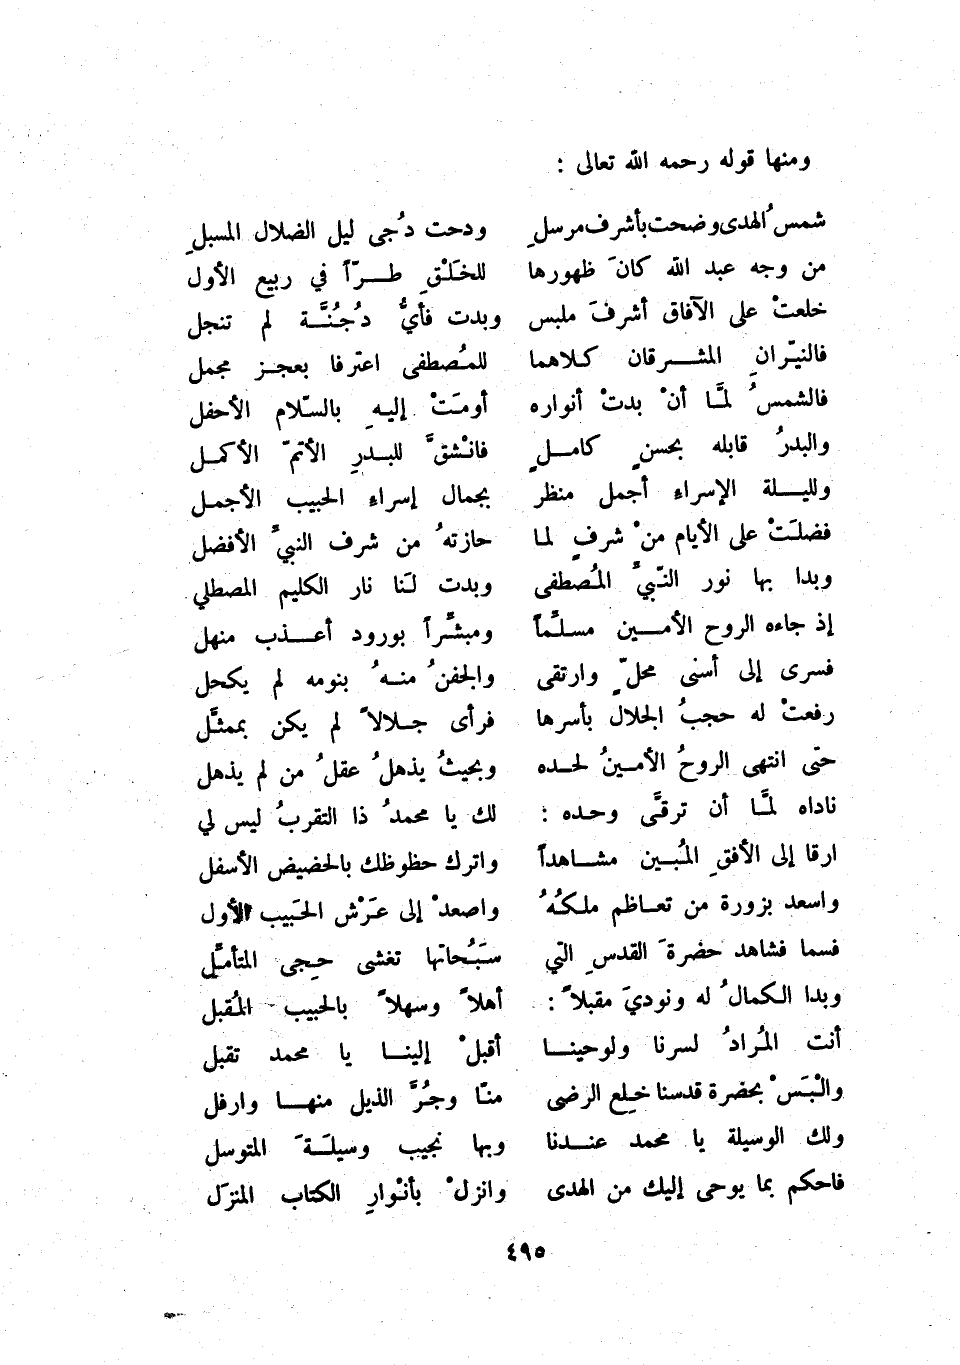 ومنها قوله رحمه الله تعالى :
شمسُ الهدى وضحت بأشرف مرسلِ ودحت دُجى ليل الضلال المسبلِ
من وجه عبد الله كانَ ظهورها للخَلْقِ طرّاً في ربيع الأول
خلعتْ على الآفاق أشرفَ ملبس وبدت فأيُّ دُجُنَّة لم تنجل
فالنيّرانِ المشرقان كلاهما للمُصطفى اعترفا بعجز مجمل
فالشمسُ لمَّا أنْ بدتْ أنواره أومَتْ إليهِ بالسّلام الأحفل
والبدرُ قابله بحسنٍ كاملٍ فانْشقَّ للبدرِ الأتمّ الأكمل
ولليلة الإسراء أجمل منظر بجمال إسراء الحبيب الأجمل
فضلَتْ على الأيام منْ شرفٍ لما حازتهُ من شرف النبيَّ الأفضل
وبدا بها نور النّبيَّ المُصطفى وبدت لَنا نار الكليم المصطلي
إذ جاءه الروح الأمين مسلَّماً ومبشَّراً بورود أعذب منهل
فسرى إلى أسنى محلّ وارتقى والجفنُ منهُ بنومه لم يكحل
رفعتْ له حجبُ الجلال بأسرها فرأى جلالاً لم يكن بممثَّل
حتّى انتهى الروحُ الأمينُ لحده وبحيثُ يذهلُ عقلُ من لم يذهل
ناداه لمَّا أن ترقَّى وحده : لك يا محمدُ ذا التقربُ ليس لي
ارقا إلى الأفقِ المُبين مشاهداً واترك حظوظك بالحضيض الأسفل
واسعد بزورة من تعاظم ملكُهُ واصعدْ إلى عَرْش الحَبيب الأول
فسما فشاهد حضرةَ القدسِ التي سَبَُحاتها تغشى حِجى المتأمَّلِ
وبدا الكمالُ له ونوديَ مقبلاً : أهلاً وسهلاً بالحبيب المُقبل
أنت المُرادُ لسرنا ولوحينا أقبلْ إلينا يا محمد تقبل
والْبَسْ بحضرة قدسنا خِلع الرضى منّا وجُرَّ الذيل منها وارفل
ولك الوسيلة يا محمد عندنا وبها نجيب وسيلَةَ المتوسل
فاحكم بما يوحى إليك من الهدى وانزلْ بأنْوارِ الكتاب المنزَل
٤٩٥